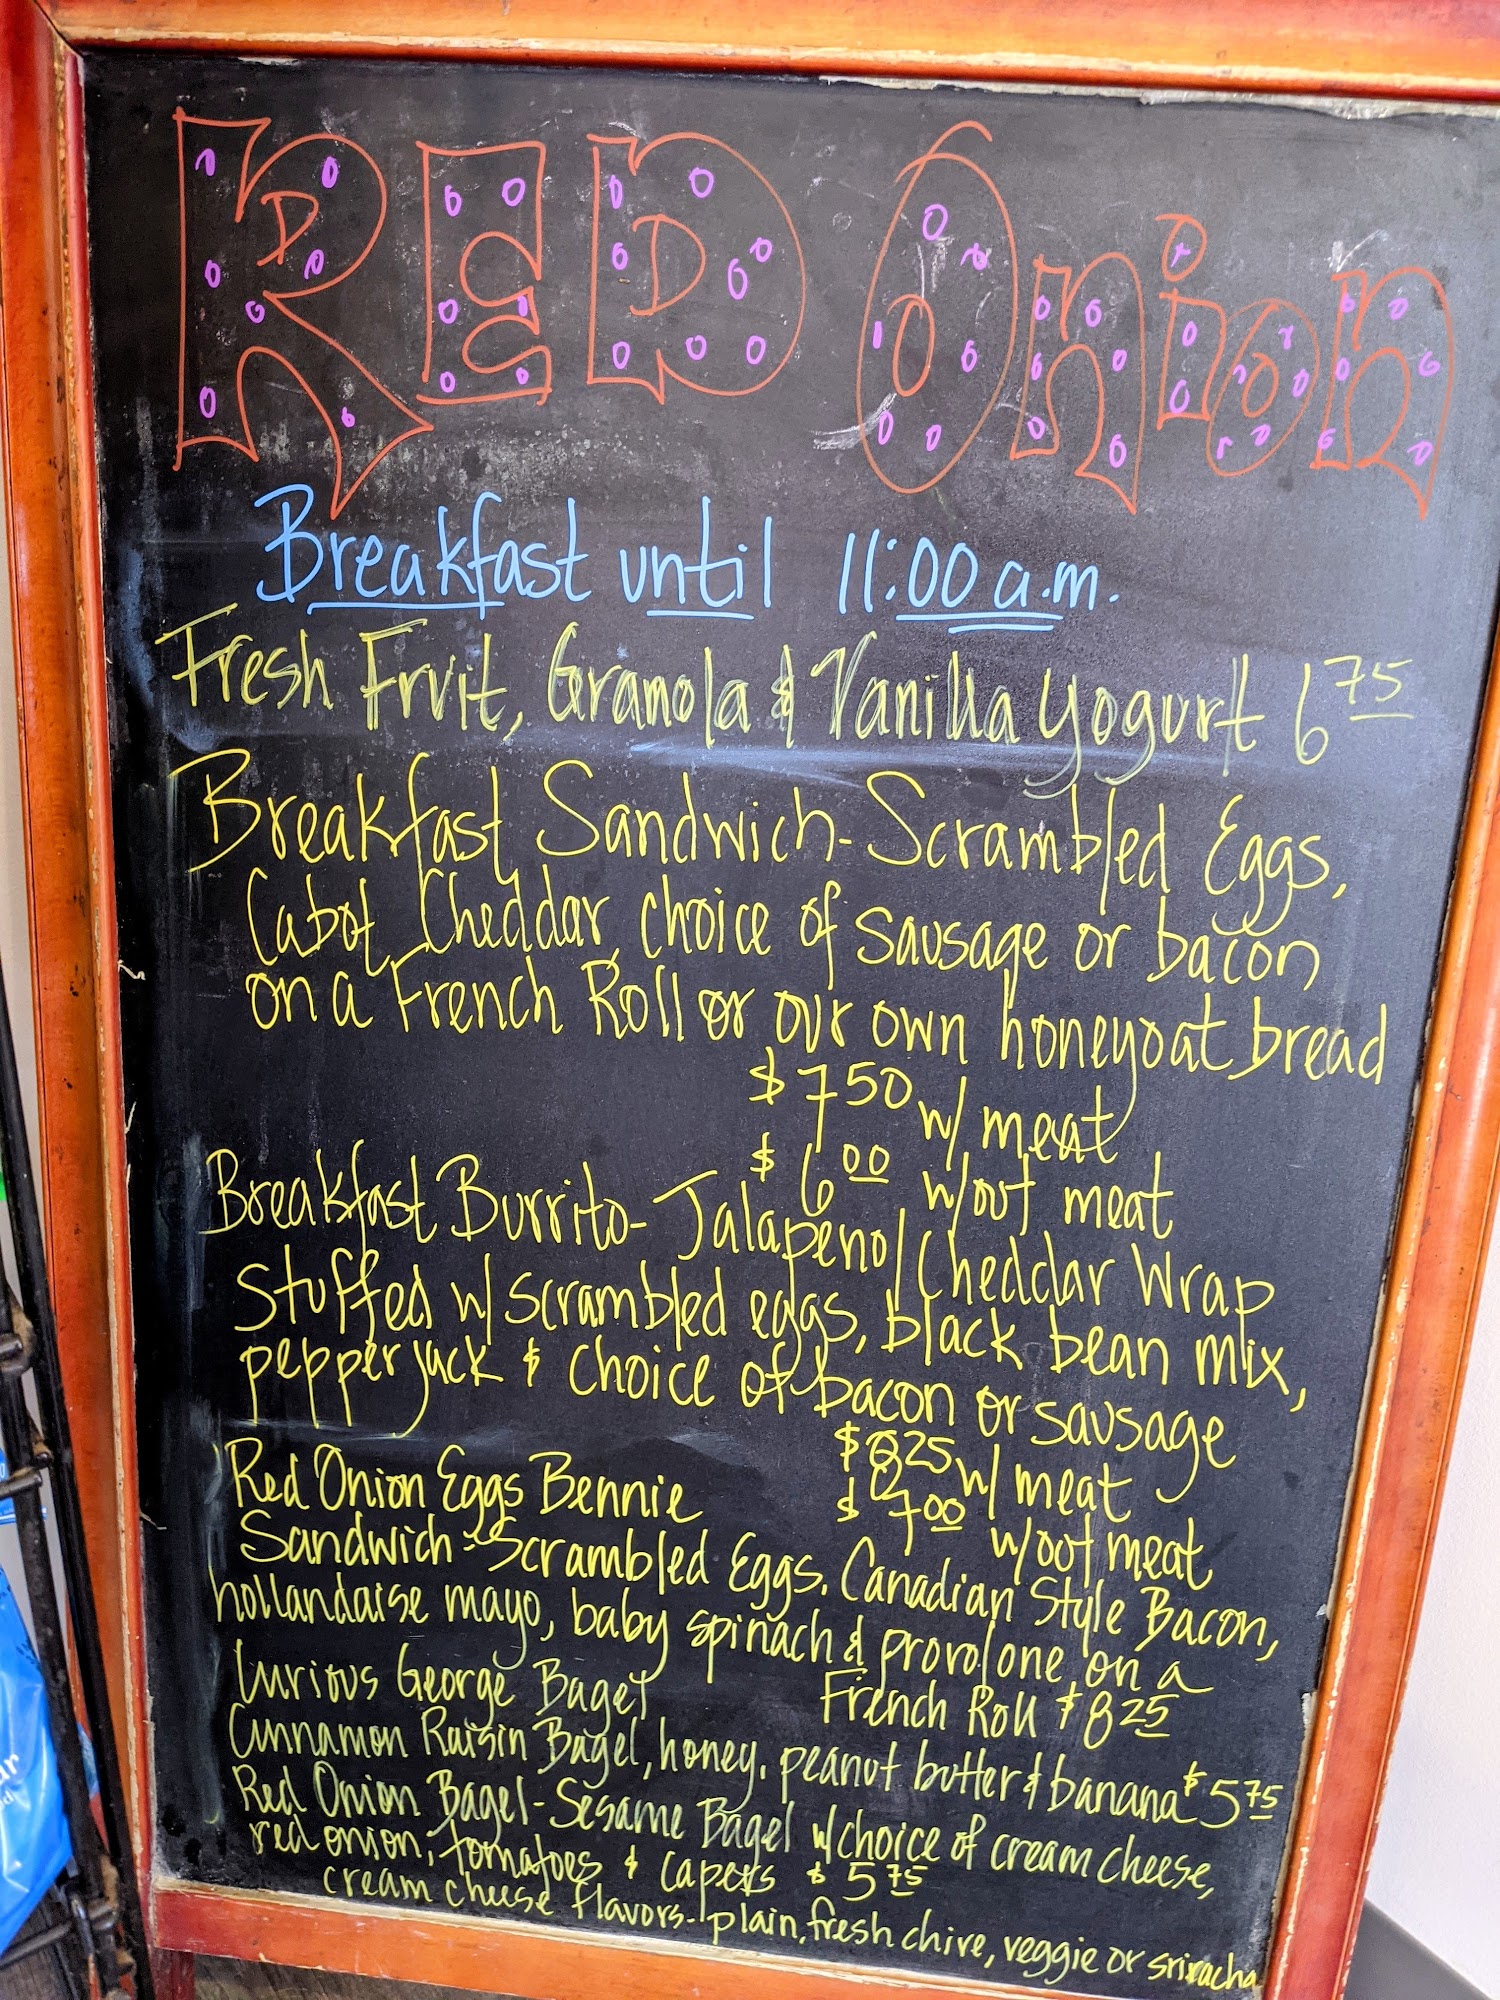 RED Onion
Breakfast until 11:00 a.m.
Fresh Fruit, Granola & Vanilla Yogurt 6 75
Breakfast Sandwich-Scrambled Eggs,
Cabot Cheddar, choice of sausage or bacon
on a French Roll or our own honeyoat bread
$7 50 w/ meat
$6 00 w/out meat
Breakfast Burrito-Jalapeno/Cheddar Wrap
Stuffed w/ scrambled eggs, black bean mix,
pepperjack & choice of bacon or sausage
$8 25 w/ meat
$7 00 w/out meat
Red Onion Eggs Bennie
Sandwich-Scrambled Eggs, Canadian Style Bacon,
hollandaise mayo, baby spinach & provolone on a
French Roll $8 25
Curious George Bagel
Cinnamon Raisin Bagel, honey, peanut butter & banana $5 75
Red Onion Bagel-Sesame Bagel w/choice of cream cheese,
red onion, tomatoes & capers $5 75
cream cheese flavors-plain, fresh chive, veggie or sriracha